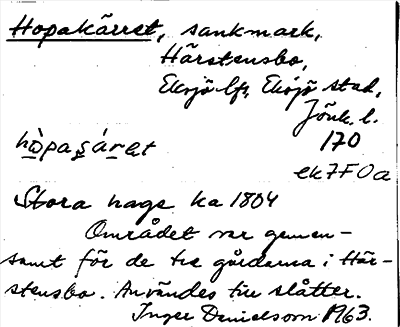 Hopakärret, sankmark,
Härstensbo,
Eksjö lfs, Eksjö stad,
Jönk. l.
170
hòpaʂáret
ek7F0a
Stora hage ka 1804
Området var gemen-
samt för de tre gårdarna i Här-
stensbo. Användes till slåtter.
Inger Danielsson 1963.